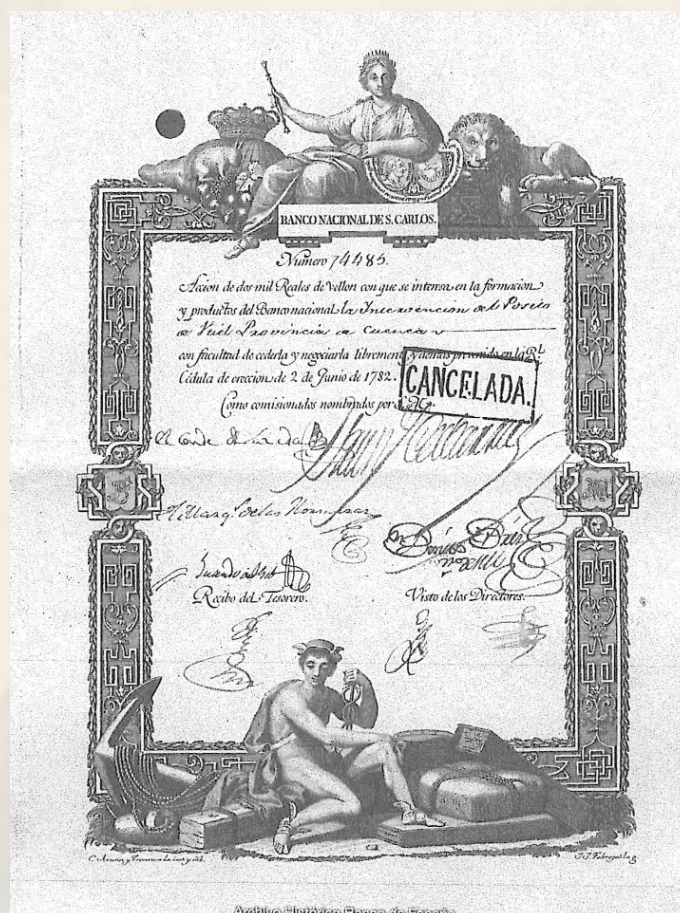 BANCO NACIONAL DE S. CARLOS.
Número 74485.
Accion de dos mil Reales de Vellon con que se interesa en la formacion
y productos del Banco nacional la Intervencion del Posito
de Provincia de Cuenca
con facultad de cederla y negociarla libremente, y demás prevenido en la Rl.
Cédula de ereccion de 2 de Junio de 1782.
CANCELADA.
Como comisionados nombrados por S. M.
el Conde de
El Marqs. de las Hormazas
Recibo del Tesorero.
Visto de los Directores.
Archivo Histórico Banco de España